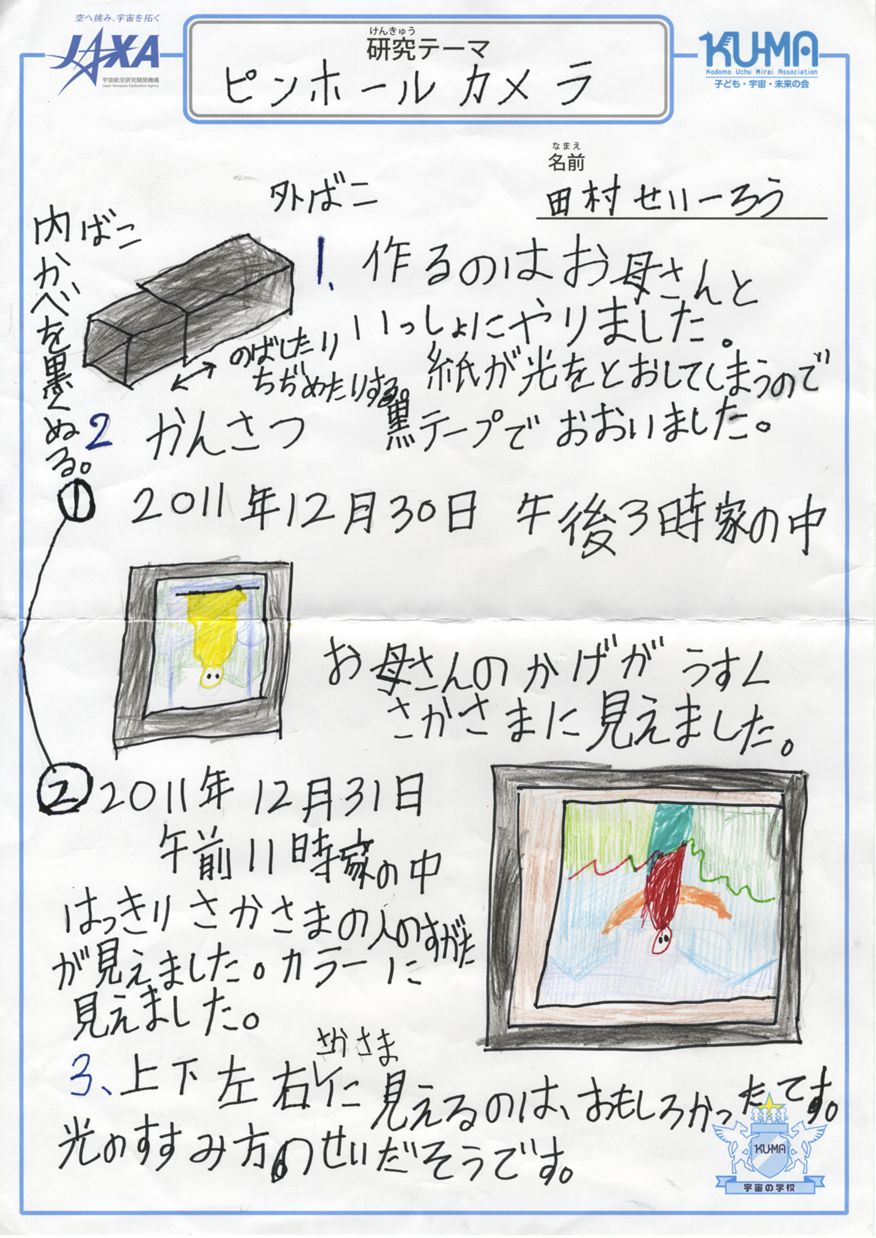 空へ挑み、宇宙を拓く
JAXA
宇宙航空研究開発機構
Japan Aerospace Exploration Agency
けんきゅう
研究テーマ
ピンホールカメラ
KU-MA
Kodomo Uchu Mirai Association
子ども・宇宙・未来の会
なまえ
名前
田村せいーろう
外ばこ
内ばこ
かべを黒くぬる。
のばしたり
ちぢめたりする。
1、作るのはお母さんと
いっしょにやりました。
紙が光をとおしてしまうので
黒テープでおおいました。
2 かんさつ
① 2011年12月30日 午後3時家の中
お母さんのかげがうすく
さかさまに見えました。
② 2011年12月31日
午前11時家の中
はっきりさかさまの人のすがた
が見えました。カラーに
見えました。
さかさま
3、上下左右に見えるのは、おもしろかったです。
光のすすみ方のせいだそうです。
KU-MA
宇宙の学校